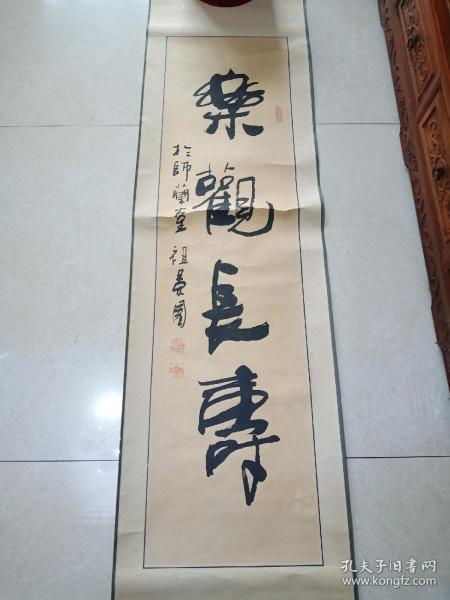 樂觀長壽
於師蘭堂 祖黃國
孔夫子旧书网
www.kongfz.com